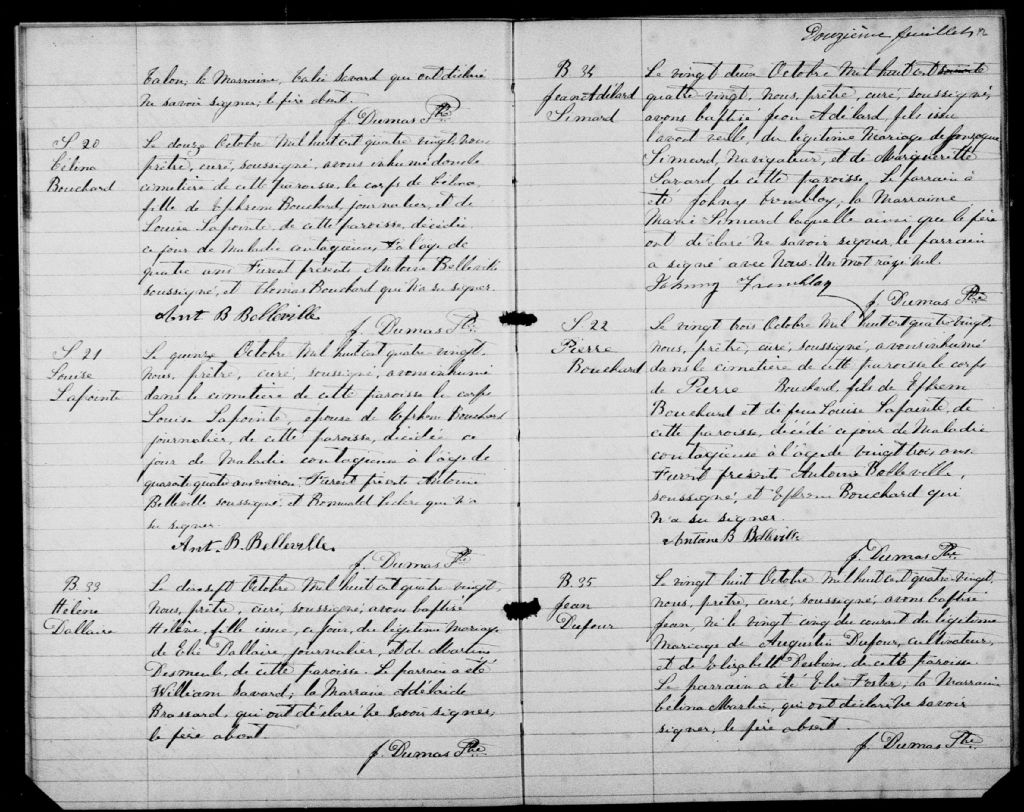 Talon, la Marraine, Talie Savard qui ont déclaré
ne savoir signer; le père absent.
J. Dumas Ptre
S 20
Célina
Bouchard
Le douze Octobre mil huit cent quatre vingt, nous
prêtre, curé, soussigné, avons inhumé dans le
cimetière de cette paroisse, le corps de Célina,
fille de Ephrem Bouchard, journalier, et de
Louise Lapointe, de cette paroisse, décédée
ce jour de maladie contagieuse, à l'âge de
quatre ans. Furent présents Antoine Belleville
soussigné, et Thomas Bouchard qui n'a su signer.
Ant B Belleville
J. Dumas Ptre
S 21
Louise
Lapointe
Le quinze Octobre mil huit cent quatre vingt,
nous, prêtre, curé, soussigné, avons inhumé
dans le cimetière de cette paroisse le corps
Louise Lapointe, épouse de Ephrem Bouchard
journalier, de cette paroisse, décédée ce
jour de maladie contagieuse à l'âge de
quarante quatre ans environ. Furent présents Antoine
Belleville soussigné, et Romuald Leclerc qui n'a
su signer.
Ant. B. Belleville
J. Dumas Ptre
B 33
Hélène
Dallaire
Le dix sept Octobre mil huit cent quatre vingt,
nous, prêtre, curé, soussigné, avons baptisé
Hélène, fille issue, ce jour, du légitime mariage
de Elie Dallaire journalier, et de Martine
Desmeules de cette paroisse. Le parrain a été
William Savard; la Marraine Adélaide
Brassard, qui ont déclaré ne savoir signer,
le père absent.
J. Dumas Ptre
Douzième feuillet
B 34
Jean Adélard
Simard
Le vingt deux Octobre mil huit cent soixante
quatre vingt, nous, prêtre, curé, soussigné,
avons baptisé Jean Adélard, fils issu
l'avant veille, du légitime mariage de
Simard, navigateur, et de Marguerite
Savard, de cette paroisse. Le parrain a
été Johny Tremblay, la Marraine
Marie Simard laquelle ainsi que le père
ont déclaré ne savoir signer, le parrain
a signé avec nous. Un mot rayé nul.
Johnny Tremblay
J. Dumas Ptre
S 22
Pierre
Bouchard
Le vingt trois Octobre mil huit cent quatre vingt,
nous, prêtre, curé, soussigné, avons inhumé
dans le cimetière de cette paroisse le corps
de Pierre Bouchard, fils de Ephrem
Bouchard et de feue Louise Lapointe, de
cette paroisse, décédé ce jour de maladie
contagieuse à l'âge de vingt trois ans.
Furent présents Antoine Belleville,
soussigné, et Ephrem Bouchard qui
n'a su signer.
Antoine B Belleville
J. Dumas Ptre
B 35
Jean
Dufour
Le vingt huit Octobre mil huit cent quatre vingt,
nous, prêtre, curé, soussigné, avons baptisé
Jean, né le vingt cinq du courant du légitime
mariage de Augustin Dufour, cultivateur,
et de Elizabeth Desbiens, de cette paroisse
Le parrain a été Elie Foster; la Marraine
Célina Martin, qui ont déclaré ne savoir
signer, le père absent.
J. Dumas Ptre